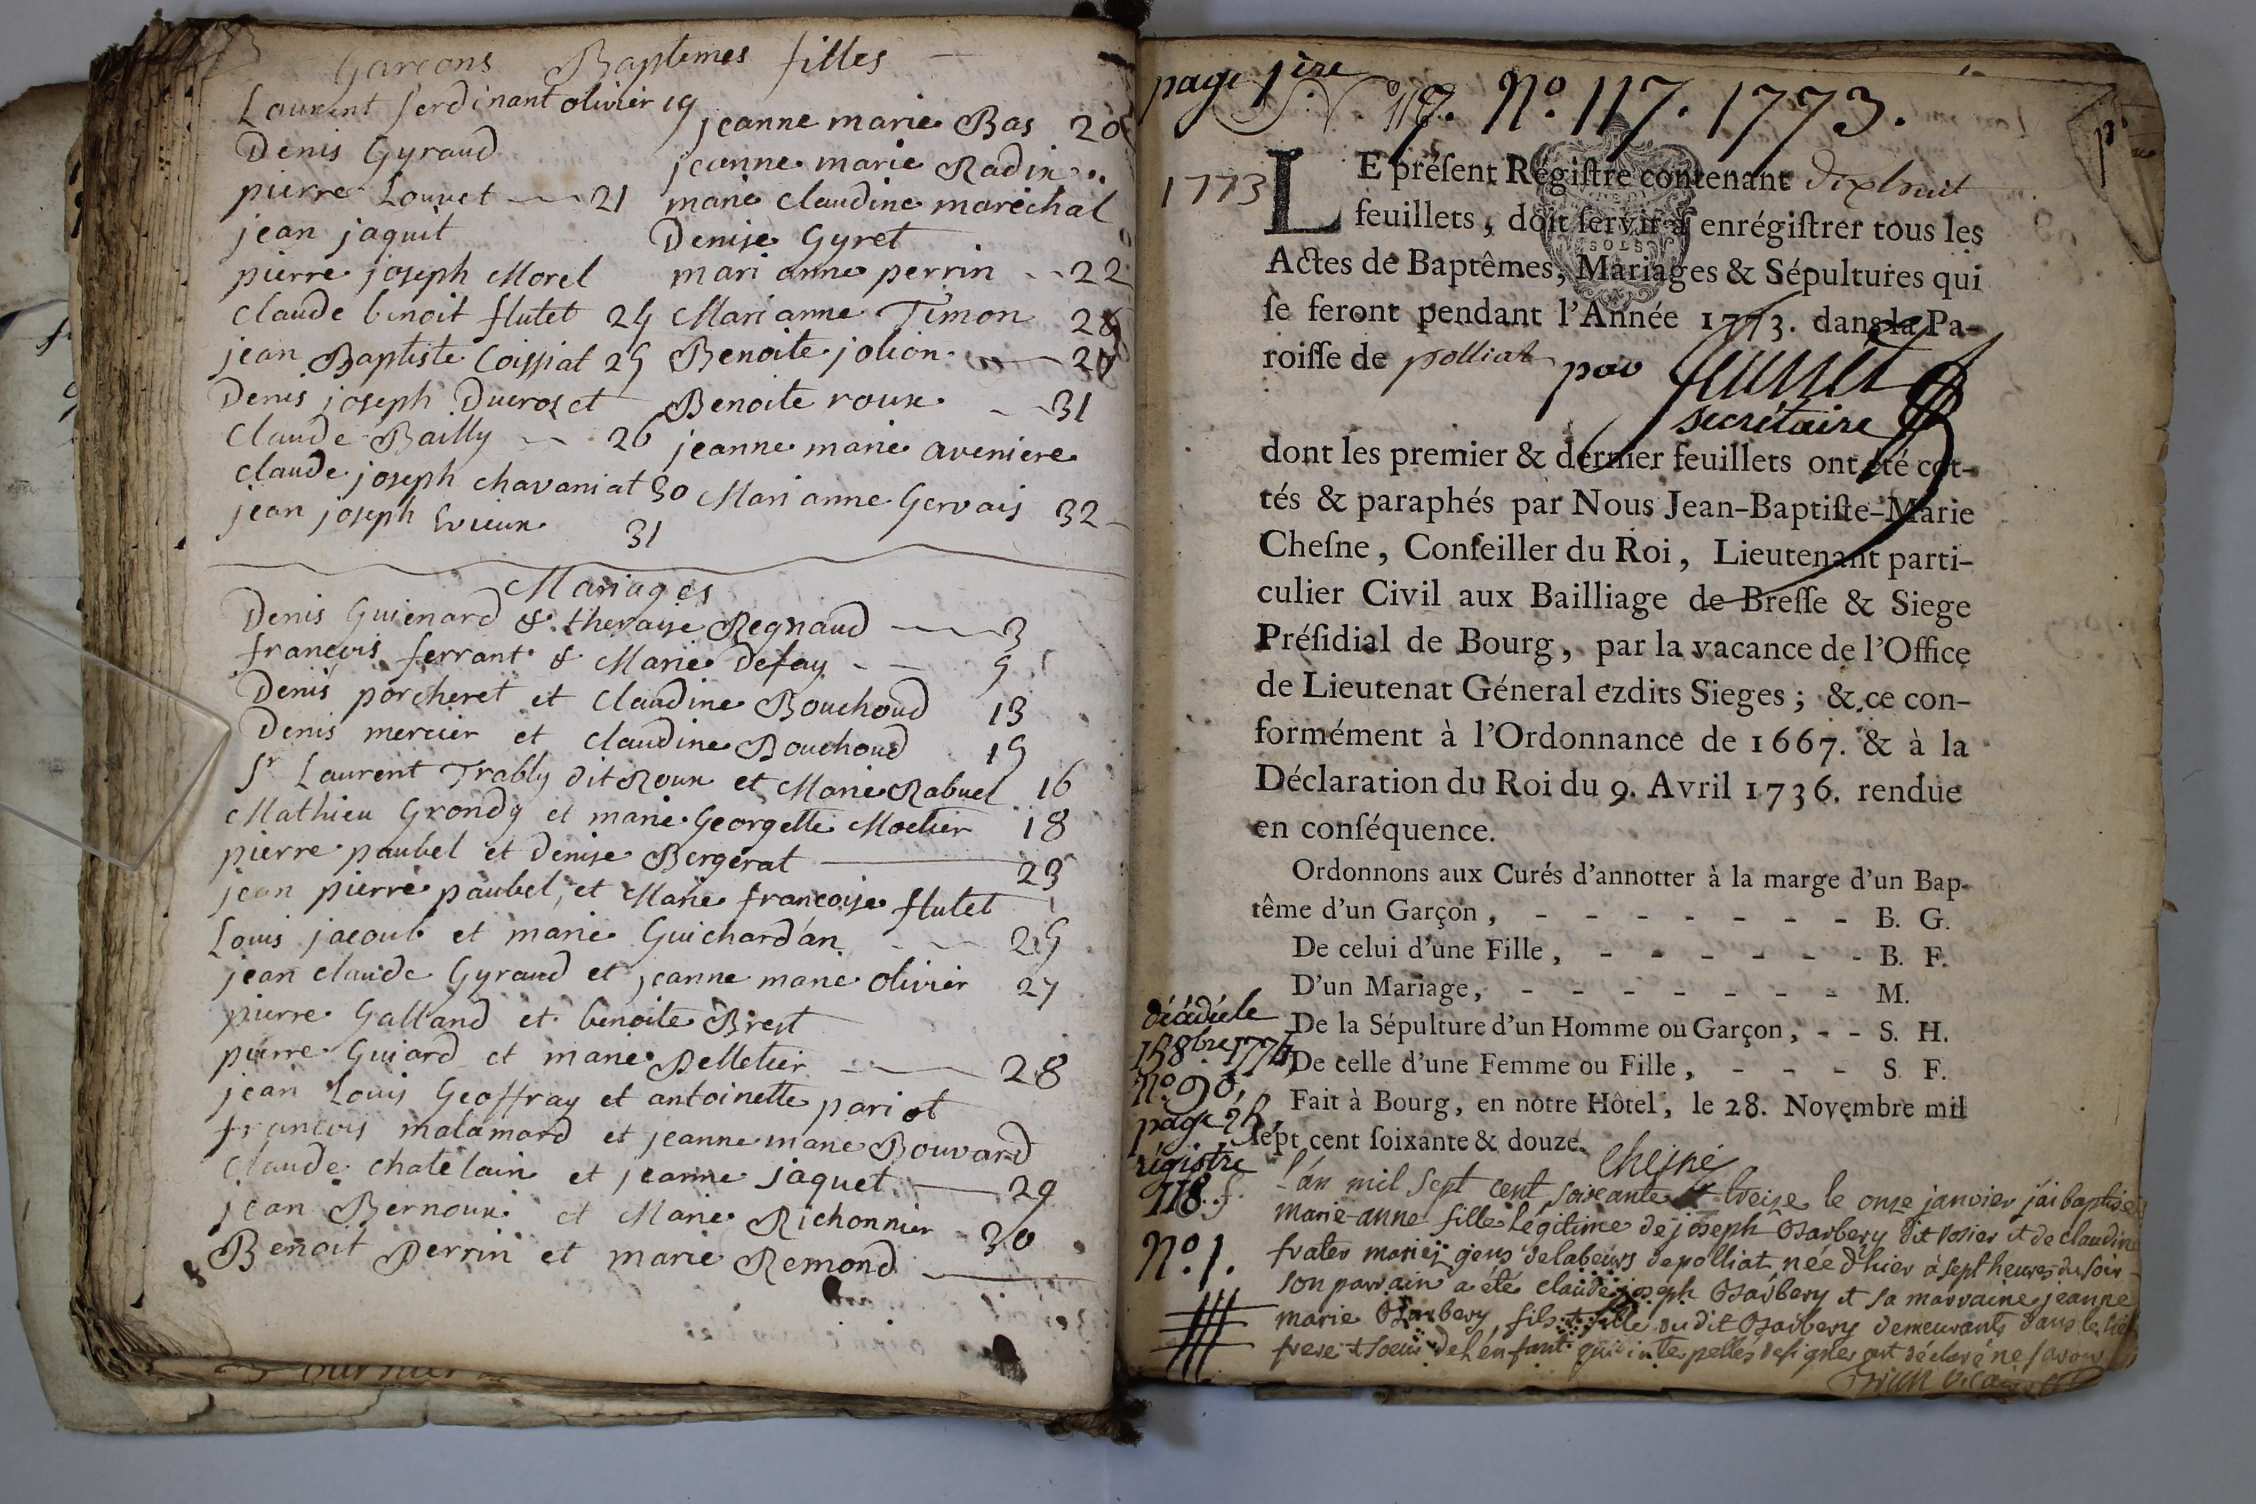 Garcons Baptemes filles
Laurent ferdinant olivier 19
Denis Gyraud
pierre Louvet 21
jean jaquit
pierre joseph Morel
Claude benoit flutet 24
jean Baptiste Coissiat 25
Denis joseph Ducroset
Claude Bailly 26
claude joseph chavaniat 30
jean joseph Evieux
31
jeanne marie Bas 20
jeanne marie Radix
marie claudine marechal
Denise Gyret
mari anne perrin 22
Mari anne Timon 28
Benoite jolion
Benoite roux 31
jeanne marie aveniere
Mari anne Gervais 32
Mariages
Denis Guienard & theraise Regnaud 3
francois ferrant & Marie Defay 9
Denis porcheret et Claudine Bouchoud 13
Denis mercier et claudine Bouchoud 15
Sr Laurent Trably dit Roux et Marie Rabuel 16
Mathieu Grondy et marie Georgette Moelier 18
pierre paubel et Denise Bergerat 23
jean pierre paubel, et Marie francoise flutet
Louis jacoub et marie Guichardan 25
jean claude Gyraud et jeanne marie olivier 27
pierre Galland et benoite Brest
pierre Guiard et marie Pelletier 28
jean Louis Geoffray et antoinette pariot
francois malamard et jeanne marie Bouvard
Claude chatelain et jeanne jaquet 29
jean Bernoux et Marie Richonnier 30
Benoit Perrin et marie Remond
page 1ère
No. 117. 1773.
1773
LE préſent Régiſtre contenant dixhuit
feuillets, doit ſervir à enrégiſtrer tous les
Actes de Baptêmes, Mariages & Sépultures qui
ſe feront pendant l'Année 1773. dans la Pa-
roiſſe de polliat par
secrétaire
dont les premier & dernier feuillets ont été cot-
tés & paraphés par Nous Jean-Baptiſte-Marie
Cheſne, Conſeiller du Roi, Lieutenant parti-
culier Civil aux Bailliage de Breſſe & Siege
Préſidial de Bourg, par la vacance de l'Office
de Lieutenat Géneral ezdits Sieges; & ce con-
formément à l'Ordonnance de 1667. & à la
Déclaration du Roi du 9. Avril 1736. rendue
en conſéquence.
Ordonnons aux Curés d'annotter à la marge d'un Bap-
tême d'un Garçon, - - - - - - - B. G.
De celui d'une Fille, - - - - - - B. F.
D'un Mariage, - - - - - - - M.
De la Sépulture d'un Homme ou Garçon, - - S. H.
De celle d'une Femme ou Fille, - - - S. F.
Fait à Bourg, en notre Hôtel, le 28. Novembre mil
ſept cent ſoixante & douze.
Chesne
décédée le
15 8bre 1774
No. 98,
page 25,
régistre
118. f.
No. 1.
L'an mil sept cent soixante et treize le onze janvier j'ai baptisé
marie-anne fille légitime de joseph Barbery dit rosier et de claudine
frater mariés gens de labeurs de polliat née d'hier à sept heures du soir
son parrain a été claude joseph Barbery et sa marraine jeanne
marie Barbery fils et fille dudit Barbery demeurants dans le
frere et soeur de l'enfant qui interpellés de signer ont déclaré ne savoir